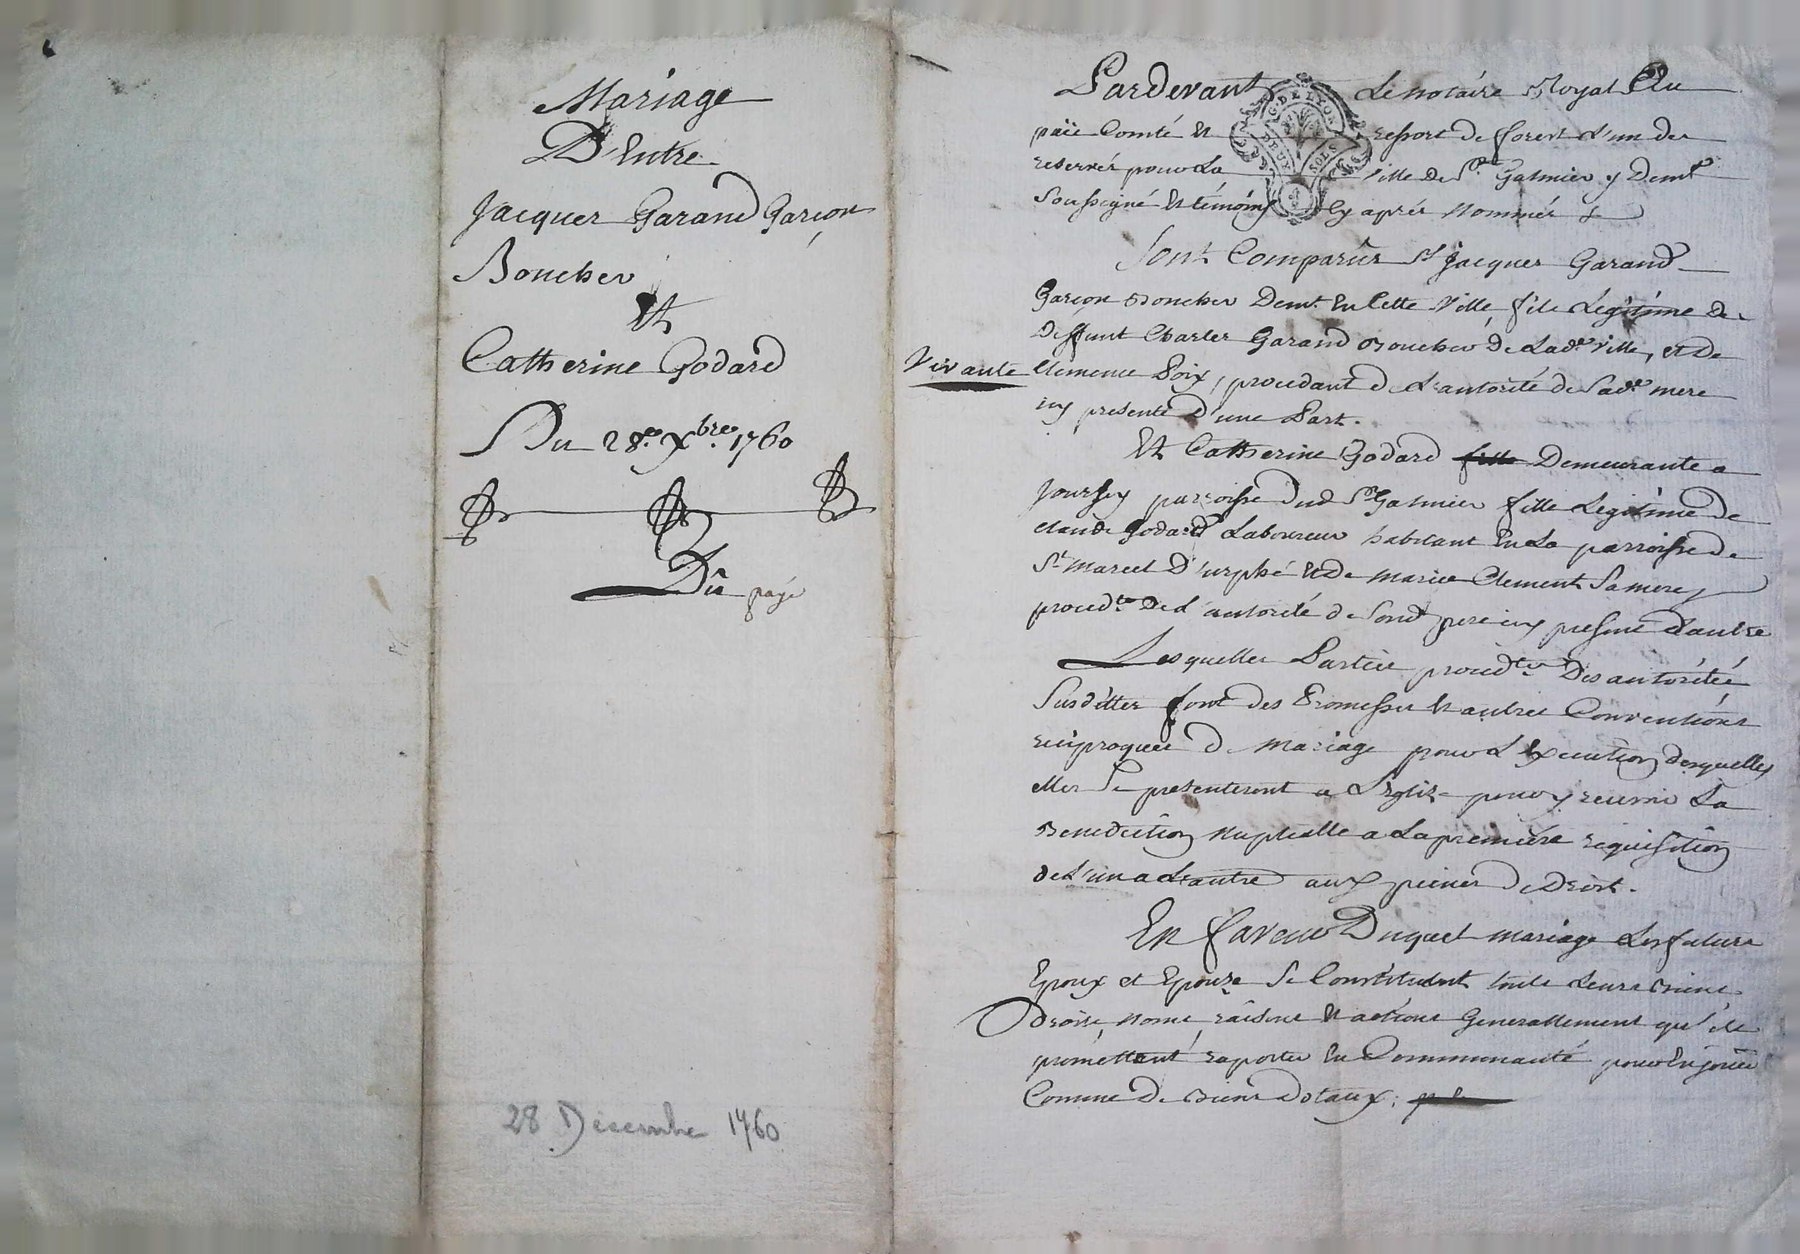 Mariage
D'Entre
Jacques Garand Garçon
Boucher
Et
Catherine Godard
Du 28.e Xbre. 1760
Dû payé
28 Décembre 1760
Pardevant Le notaire Royal Au
païs Comté et ressort de forest L'un des
reservés pour La Ville de St. Galmier y demt
Soussigné et témoins Cy après nommés
G. DE LYON
DEUX SOLS
Sont Comparus Sr Jacques Garand
Garçon Boucher Demt. En Cette Ville, fils Légitime de
Deffunt Charles Garand Boucher de Lade. Ville, et de
Vivante
Clemence Poix, procedant de L'autorité de Sade. mere
icy presente D'une Part.
Et Catherine Godard fille Demeurante a
Joursey parroisse dud St. Galmier fille Légitime de
Claude Godard Laboureur habitant En La parroisse de
St. Marcel D'urphé et de Marie Clement Sa mere,
procedte. De L'autorité de Sond pere icy present d'autre
Lesquelles Parties procedtes. Des autorités
Susdittes font des Promesses et autres Conventions
reciproques de Mariage pour L'Execution desquelles
elles Se presenteront a L'Eglize pour y recevoir La
Benediction Nuptialle a La premiere requisition
de L'un a L'autre aux peines de Droit.
En faveur Duquel mariage Les futurs
Epoux et Epouze Se Constituent touts Leurs Biens
droits, noms, raisons et actions Generallement qu'ils
promettent raporter En Communauté pour En jouir
Comme De Biens Dotaux;